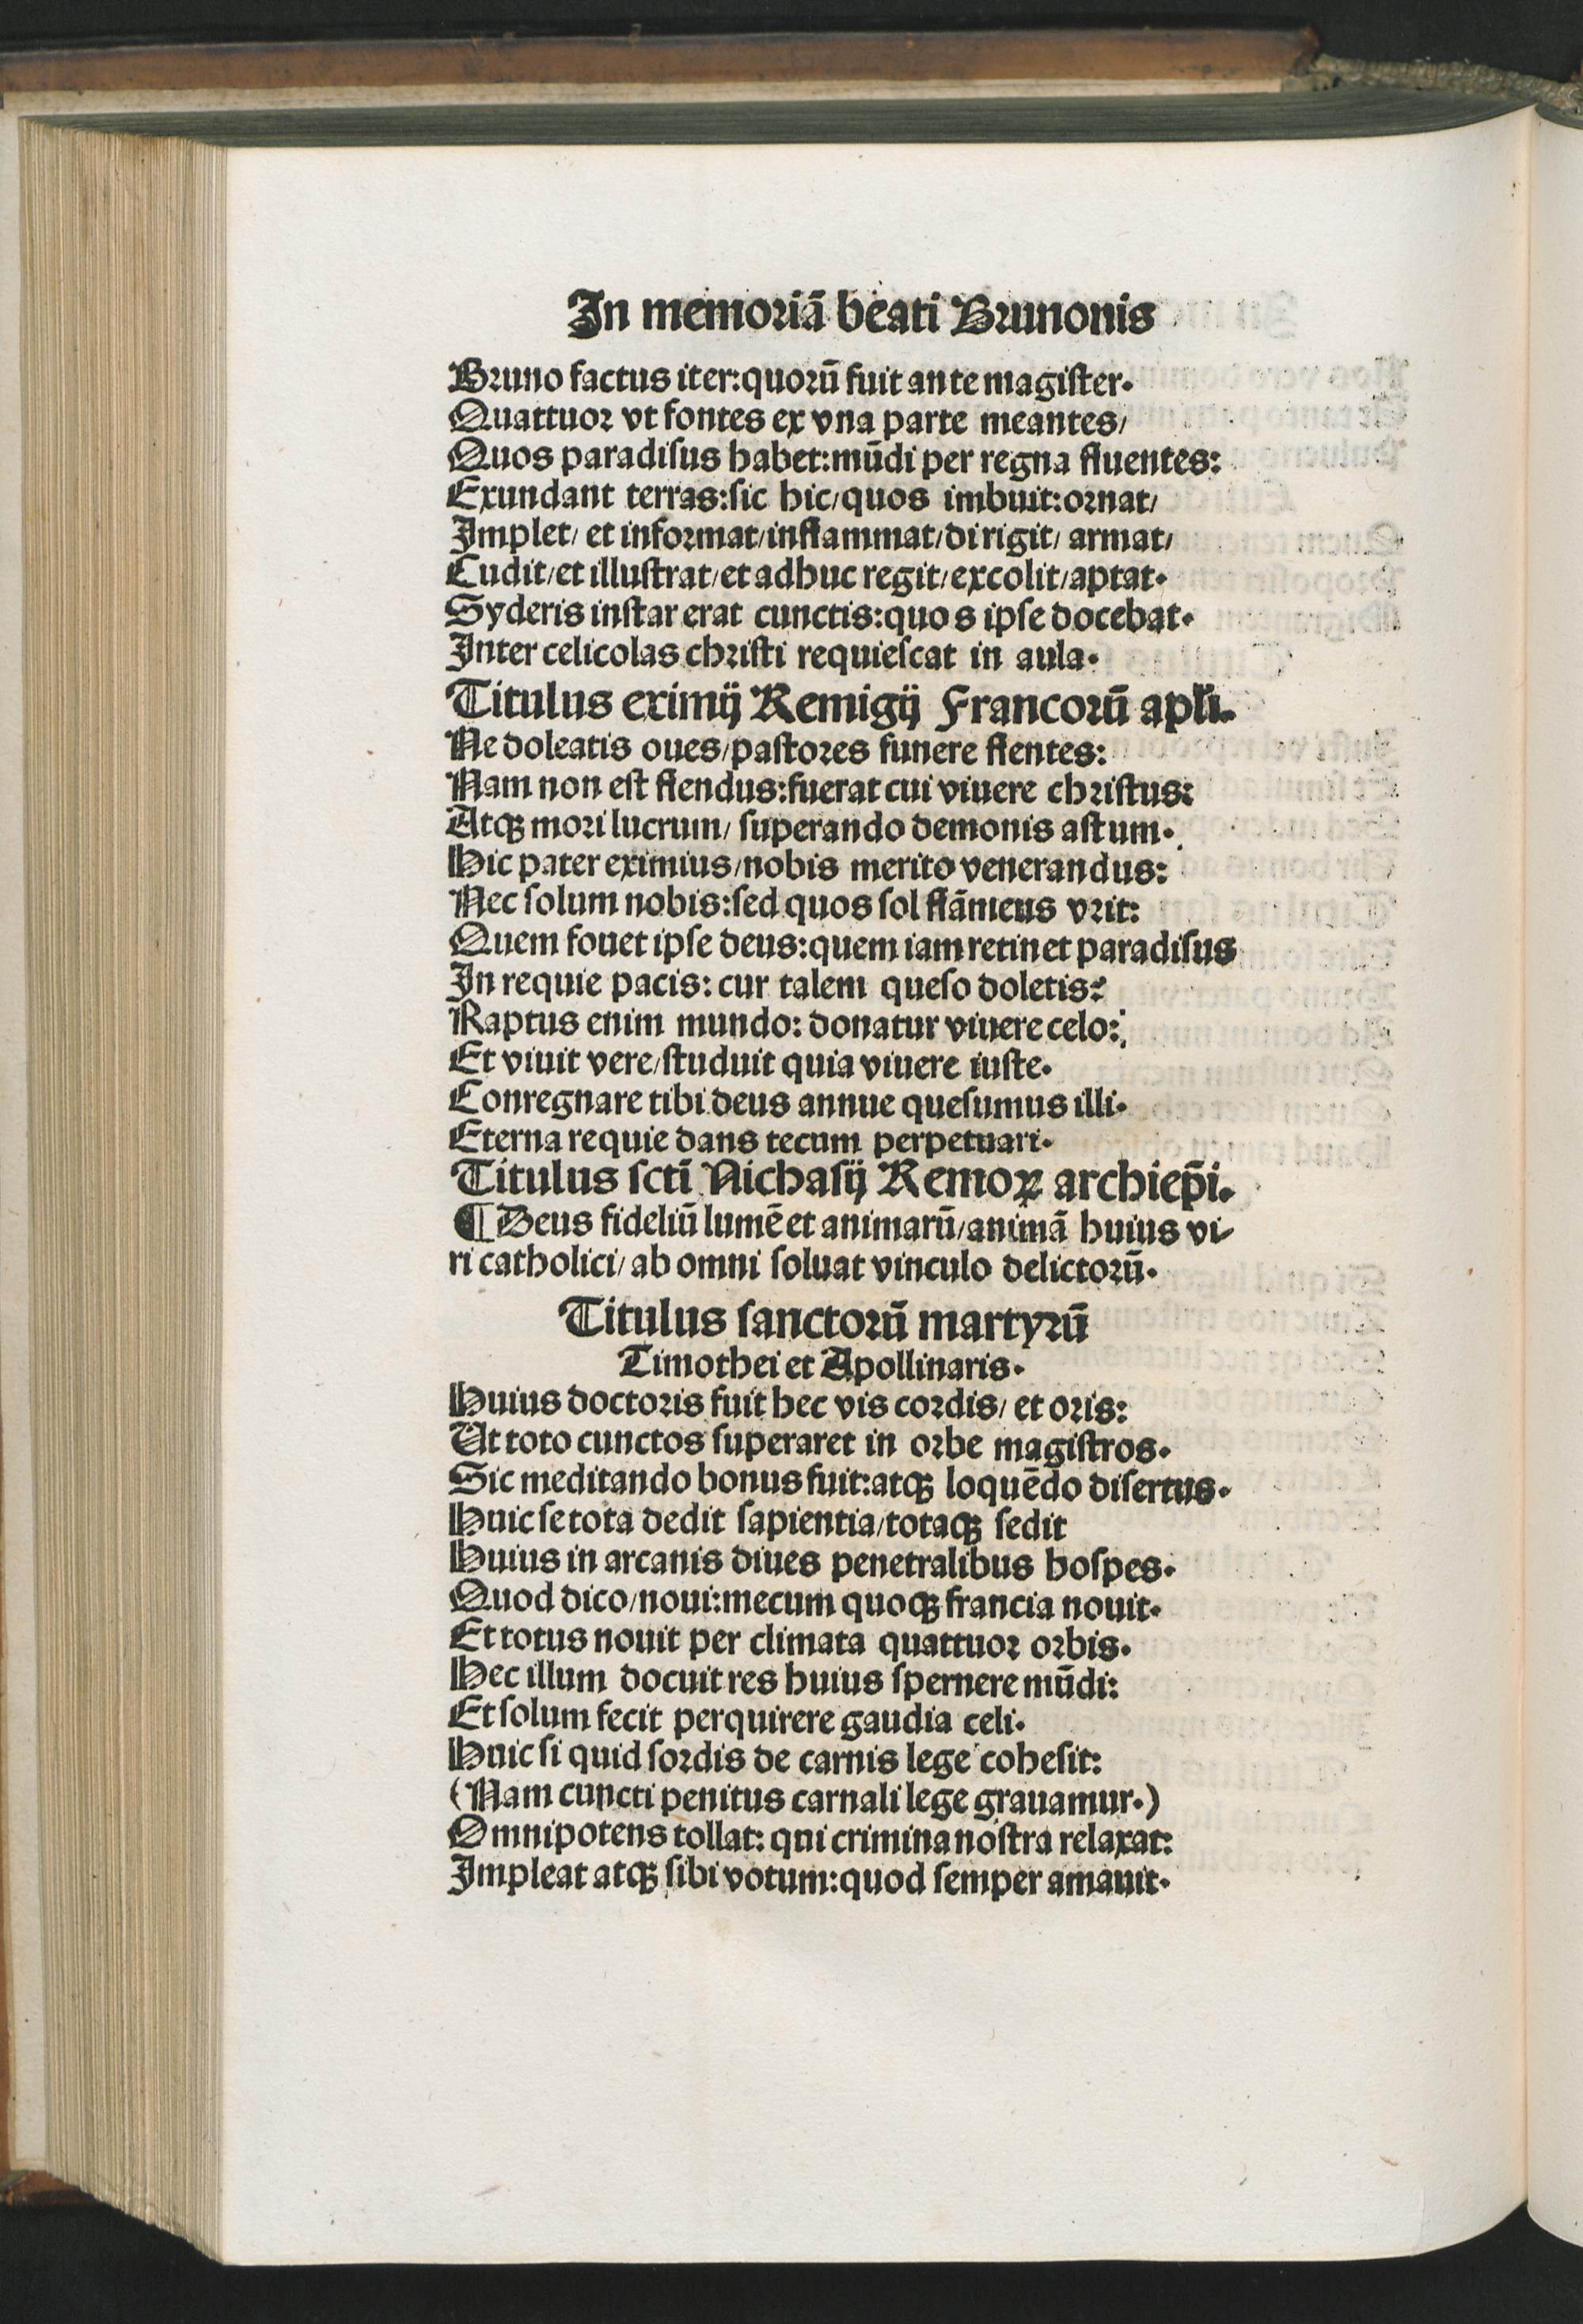 In memoriā beati Brunonis
Bruno factus iter:quorū fuit ante magister.
Quattuor vt fontes ex vna parte meantes/
Quos paradisus habet:mūdi per regna fluentes:
Exundant terras:sic hic/quos imbuit:ornat/
Implet/ et informat/inflammat/dirigit/ armat/
Cudit/et illustrat/et adhuc regit/excolit/aptat.
Syderis instar erat cunctis:quos ipse docebat.
Inter celicolas christi requiescat in aula.
Titulus eximij Remigij Francorū apłi.
Ne doleatis oues/pastores funere flentes:
Nam non est flendus:fuerat cui viuere christus:
Atqꝫ mori lucrum/ superando demonis astum.
Hic pater eximius/nobis merito venerandus:
Nec solum nobis:sed quos sol flāmeus vrit:
Quem fouet ipse deus:quem iam retinet paradisus
In requie pacis: cur talem queso doletis?
Raptus enim mundo: donatur viuere celo:
Et viuit vere/studuit quia viuere iuste.
Conregnare tibi deus annue quesumus illi.
Eterna requie dans tecum perpetuari.
Titulus scti̅ Nichasij Remoꝝ archiep̄i.
¶Deus fideliū lumē et animarū/animā huius vi-
ri catholici/ ab omni soluat vinculo delictorū.
Titulus sanctorū martyrū
Timothei et Apollinaris.
Huius doctoris fuit hec vis cordis/ et oris:
Ut toto cunctos superaret in orbe magistros.
Sic meditando bonus fuit:atqꝫ loquēdo disertus.
Huic se tota dedit sapientia/totaqꝫ sedit
Huius in arcanis diues penetralibus hospes.
Quod dico/noui:mecum quoqꝫ francia nouit.
Et totus nouit per climata quattuor orbis.
Hec illum docuit res huius spernere mūdi:
Et solum fecit perquirere gaudia celi.
Huic si quid sordis de carnis lege cohesit:
(Nam cuncti penitus carnali lege grauamur.)
Omnipotens tollat: qui crimina nostra relaxat:
Impleat atqꝫ sibi votum:quod semper amauit.